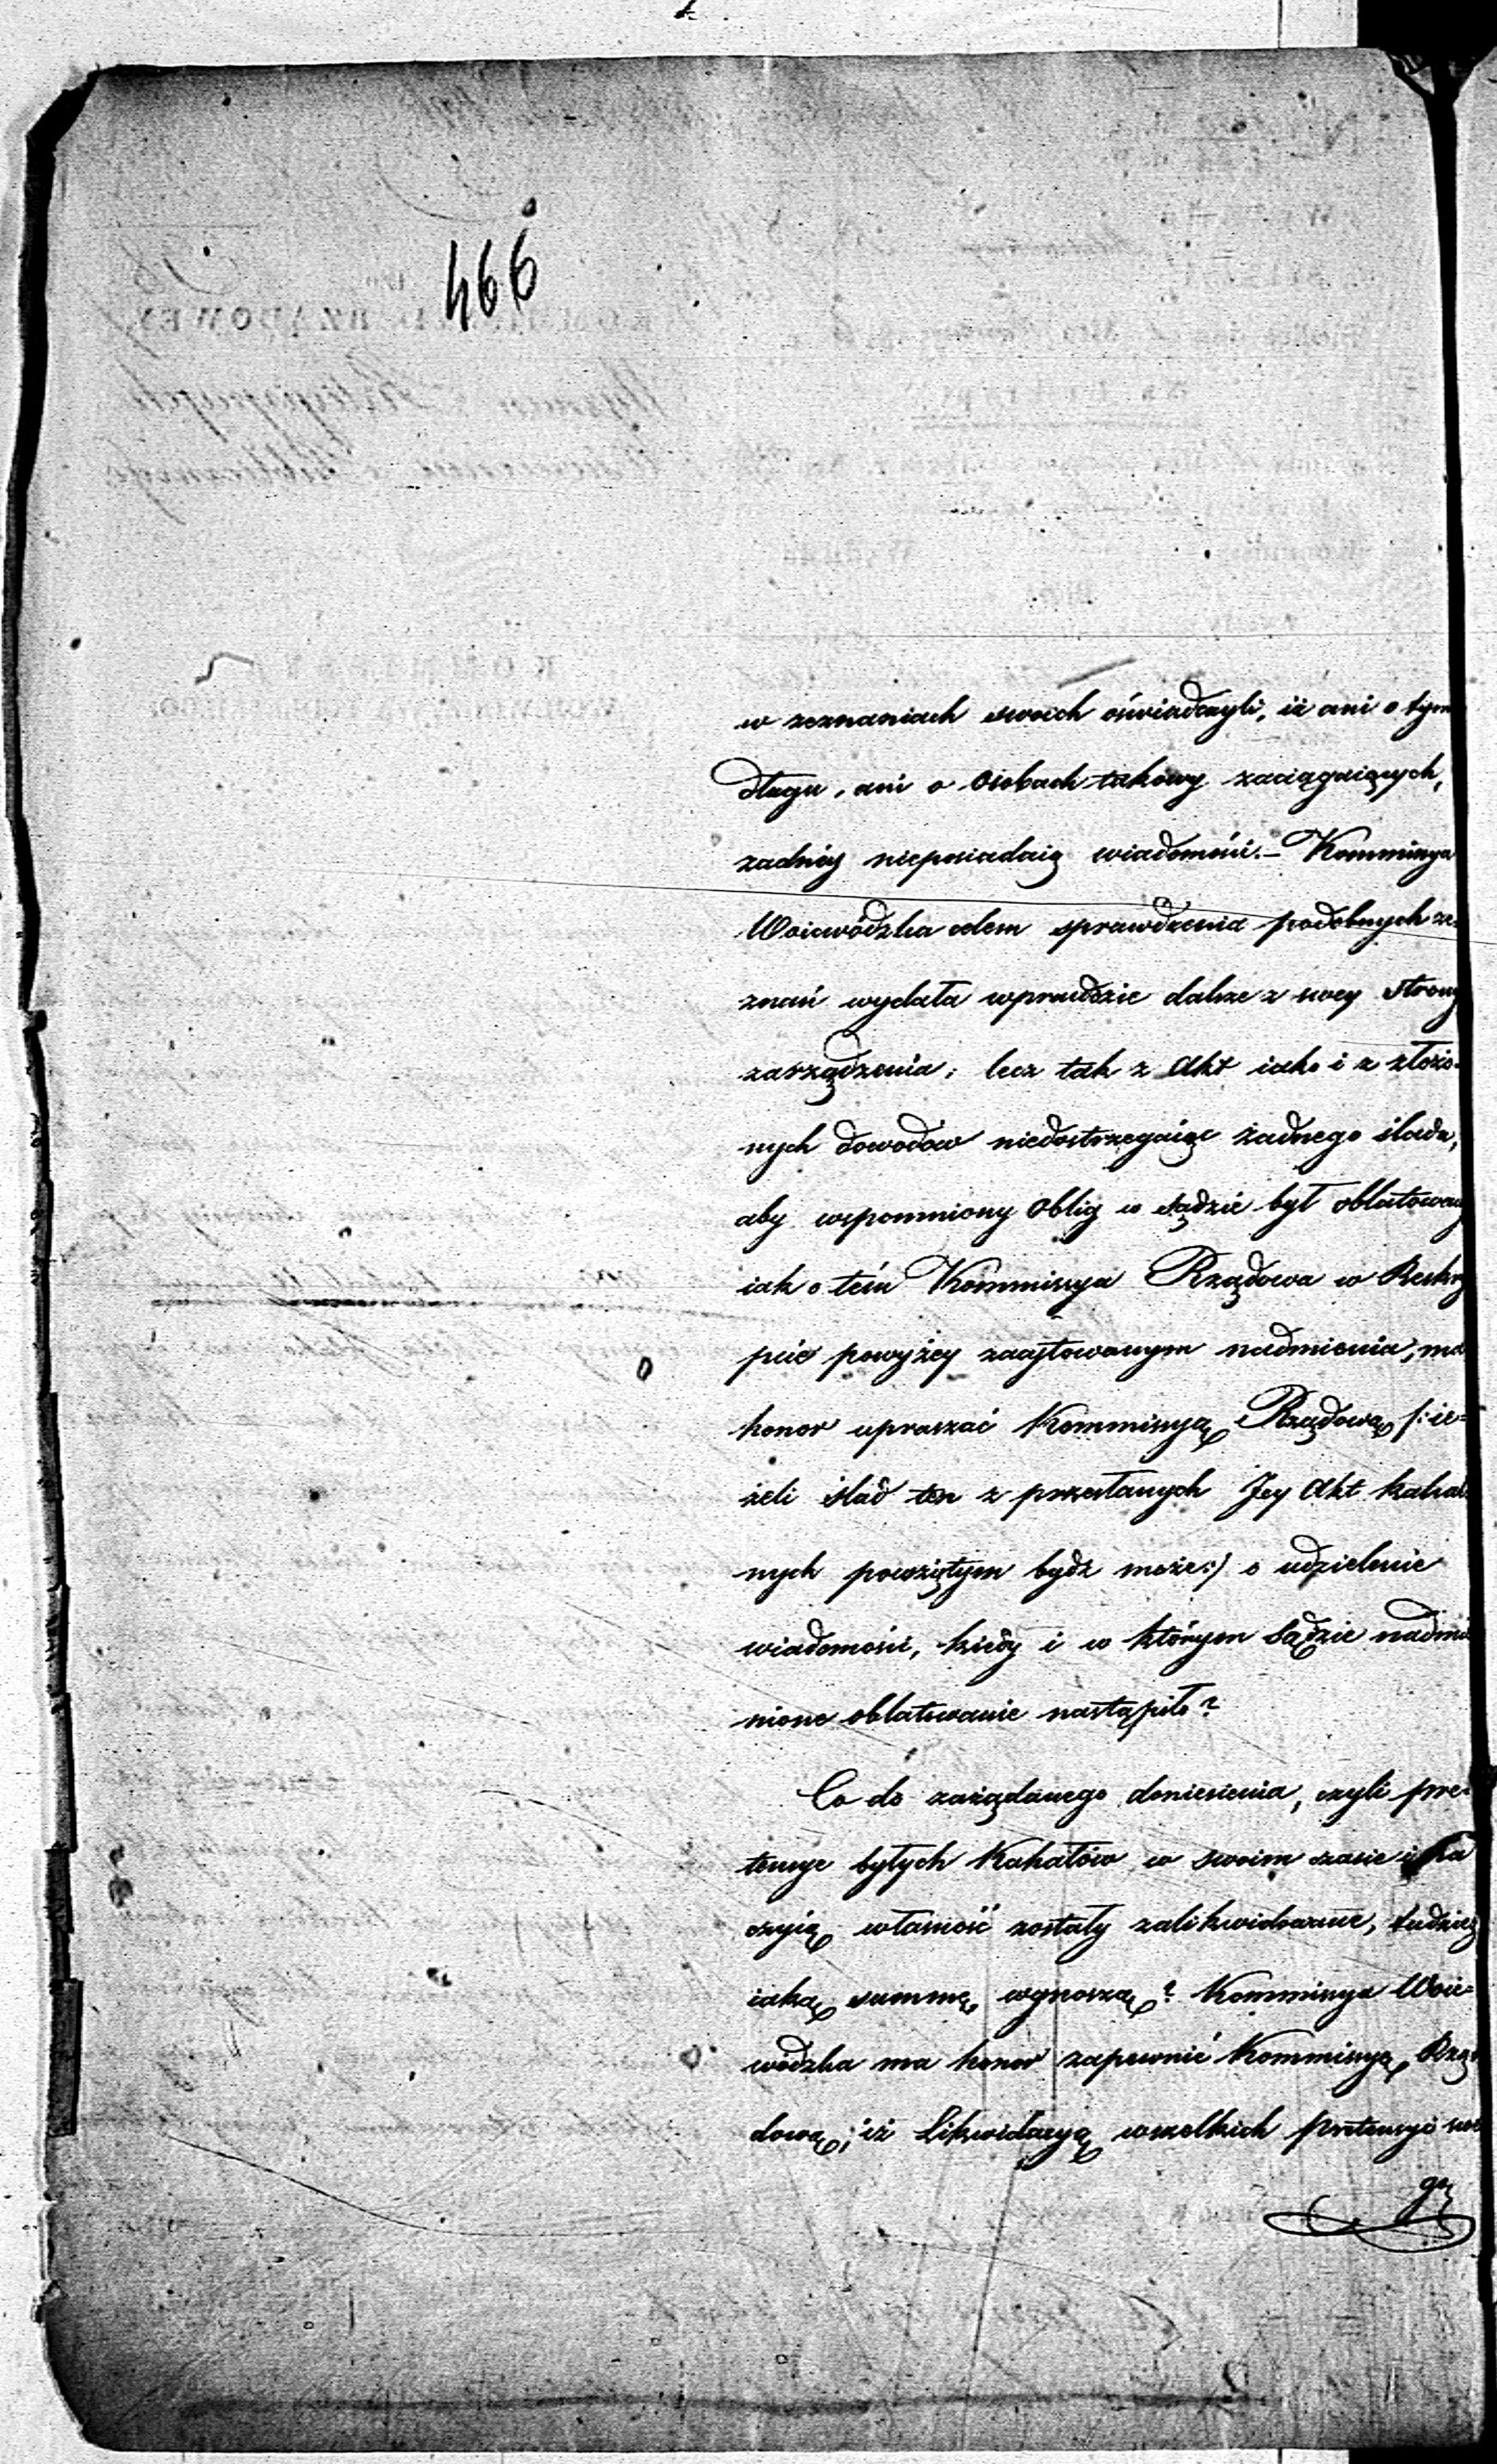 466
w zeznaniach swoich oświadczyli, iż ani o tym
długu, ani o Osobach takowy zaciągaiących,
żadnéy nieposiadaią wiadomości. — Kommissya
Woiewódzka celem sprawdzenia podobnych ze-
znań wydała wprawdzie dalsze z swey strony
zarządzenia; lecz tak z Akt iako i z złożo-
nych dowodów niedostrzegaiąc żadnego śladu,
aby wspomniony Oblig w Sądzie był oblatowany
iak o tém Kommissya Rządowa w Reskry
pcie powyżey zacytowanym nadmienia, ma
honor upraszać Kommissyą Rządową /: ie=
żeli ślad ten z przesłanych Jey Akt kahal
nych powziętym bydź może :/ o udzielenie
wiadomości, kiedy i w którym Sądzie nadmie
nione oblatowanie nastąpiło?
Co do zażądanego doniesienia, czyli pre-
tensye byłych Kahałów w swoim czasie i na
czyią własność zostały zalikwidowane, tudzież
iaką summę wynoszą? Kommissya Woie=
wódzka ma honor zapewnić Kommissyą Rzą-
dową; iż Likwidacyą wszelkich pretensyi